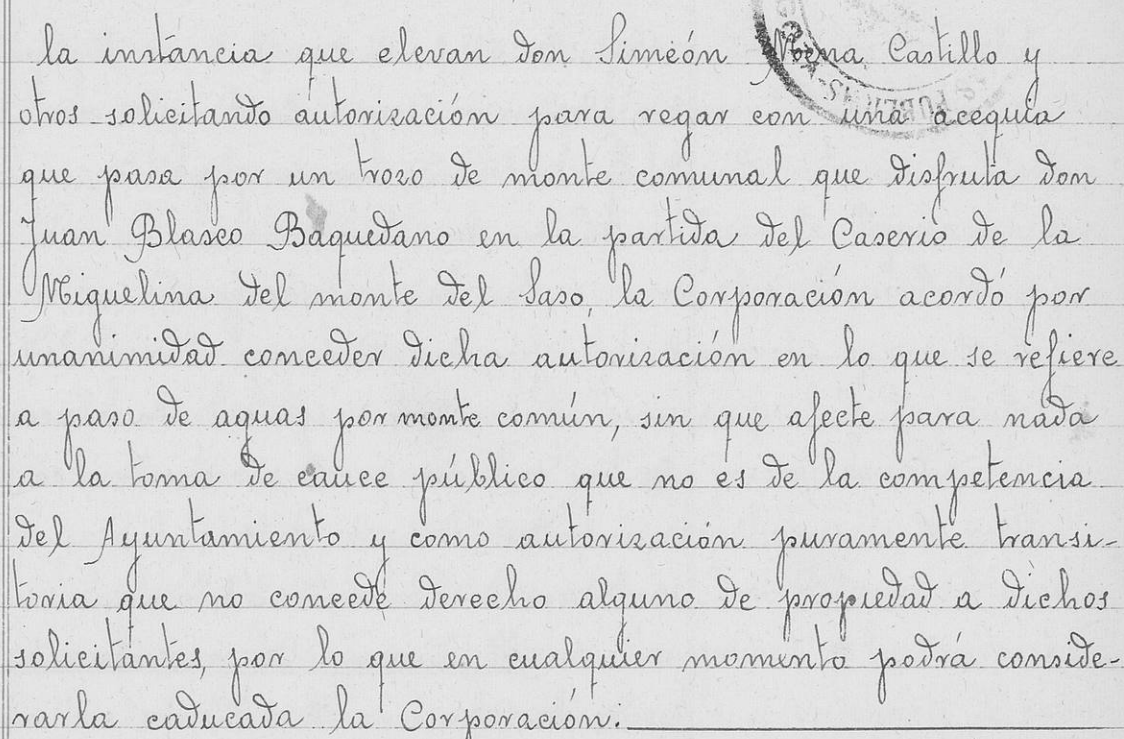 la instancia que elevan don Simeón Castillo y
otros solicitando autorización para regar con una acequia
que pasa por un trozo de monte comunal que disfruta don
Juan Blasco Baquedano en la partida del Caserio de la
Miguelina del monte del Saso, la Corporación acordó por
unanimidad conceder dicha autorización en lo que se refiere
a paso de aguas por monte común, sin que afecte para nada
a la toma de cauce público que no es de la competencia
del Ayuntamiento y como autorización puramente transi-
toria que no concede derecho alguno de propiedad a dichos
solicitantes, por lo que en cualquier momento podrá conside-
rarla caducada la Corporación.